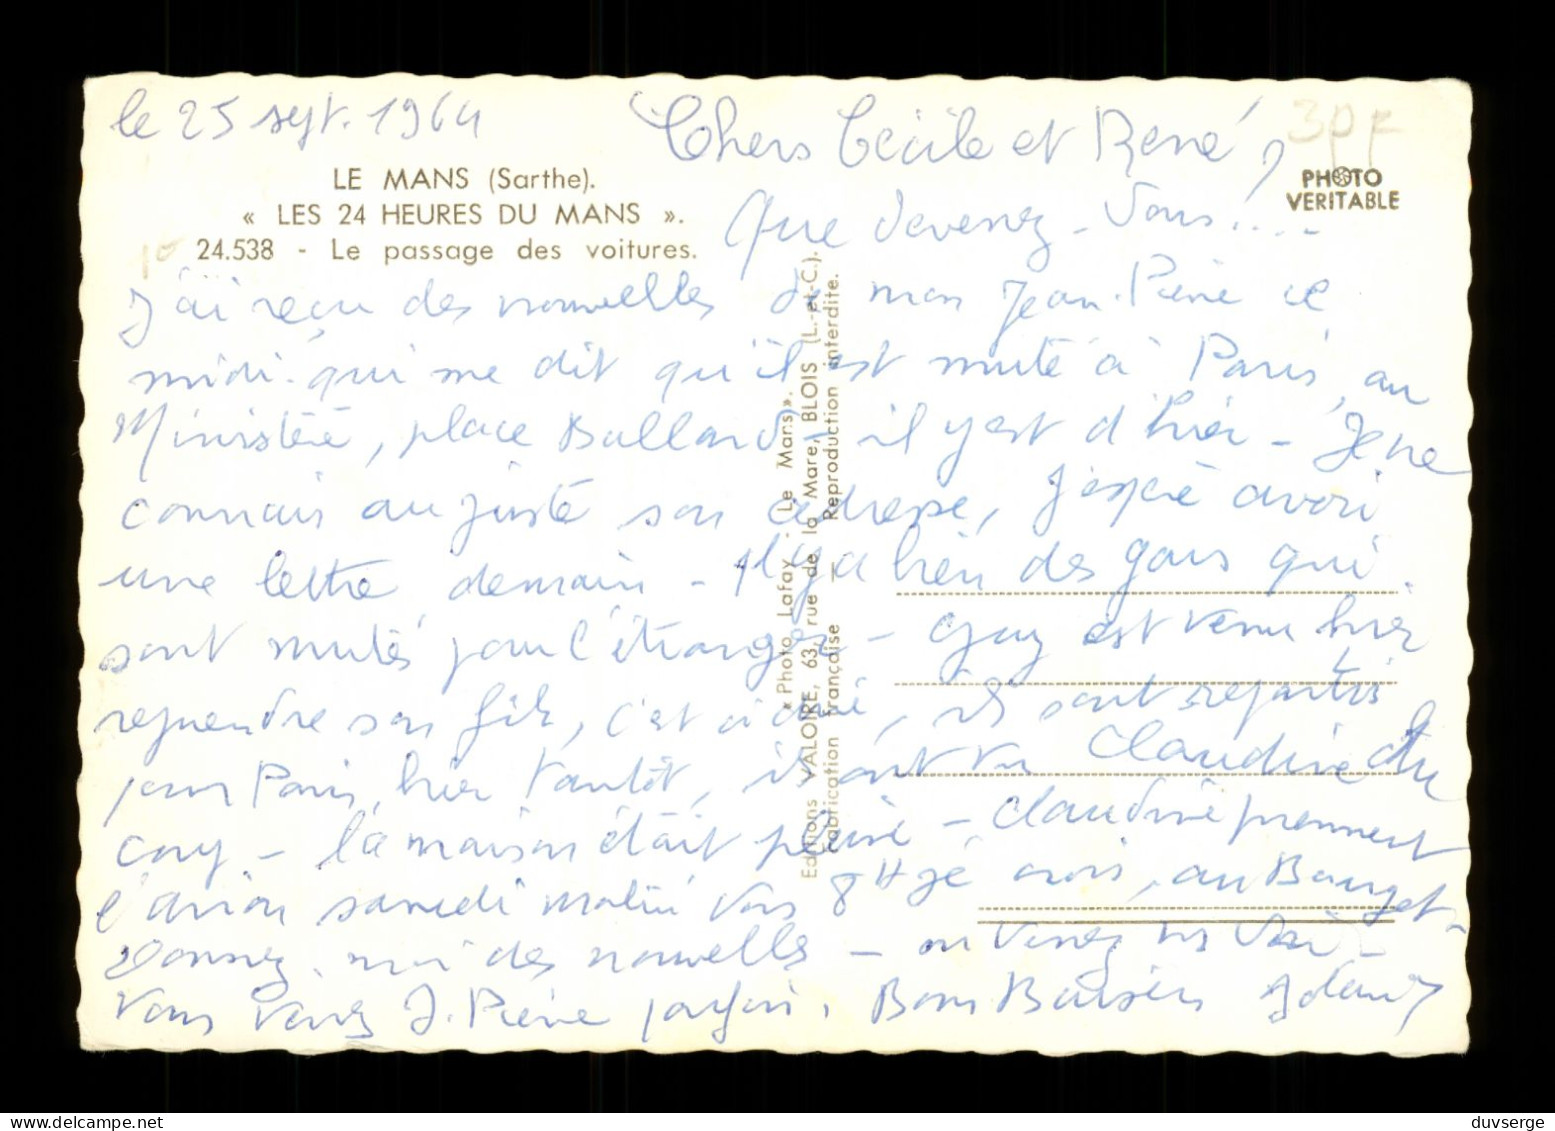 le 25 sept. 1964
Chers Cécile et René,
3pf
PHOTO
VERITABLE
LE MANS (Sarthe).
« LES 24 HEURES DU MANS ».
24.538 - Le passage des voitures.
Que devenez-vous!....
J'ai reçu des nouvelles de mon Jean-Pierre ce
midi. qui me dit qu'il est muté à Paris, au
Ministère, place Ballard - il y est d'hier - Je ne
connais au juste son adresse, j'espère avoir
une lettre demain - Il y a bien des gars qui
sont mutés pour l'étranger - Guy est venu hier
reprendre son fils, c'est ils sont repartis
pour Paris, hier tantôt, ils ont vu Claudine
- la maison était pleine - Claudine prennent
l'avion samedi matin vers 8H je crois, au Bourget -
Donnez-moi des nouvelles - ou venez me voir -
Vous verrez J. Pierre parfois. Bons Baisers
« Photo Lafay - Le Mans ».
Editions VALOIRE, 63, rue de la Mare, BLOIS (L.-et-C.).
Fabrication française — Reproduction interdite.
delcampe.net
duvserge